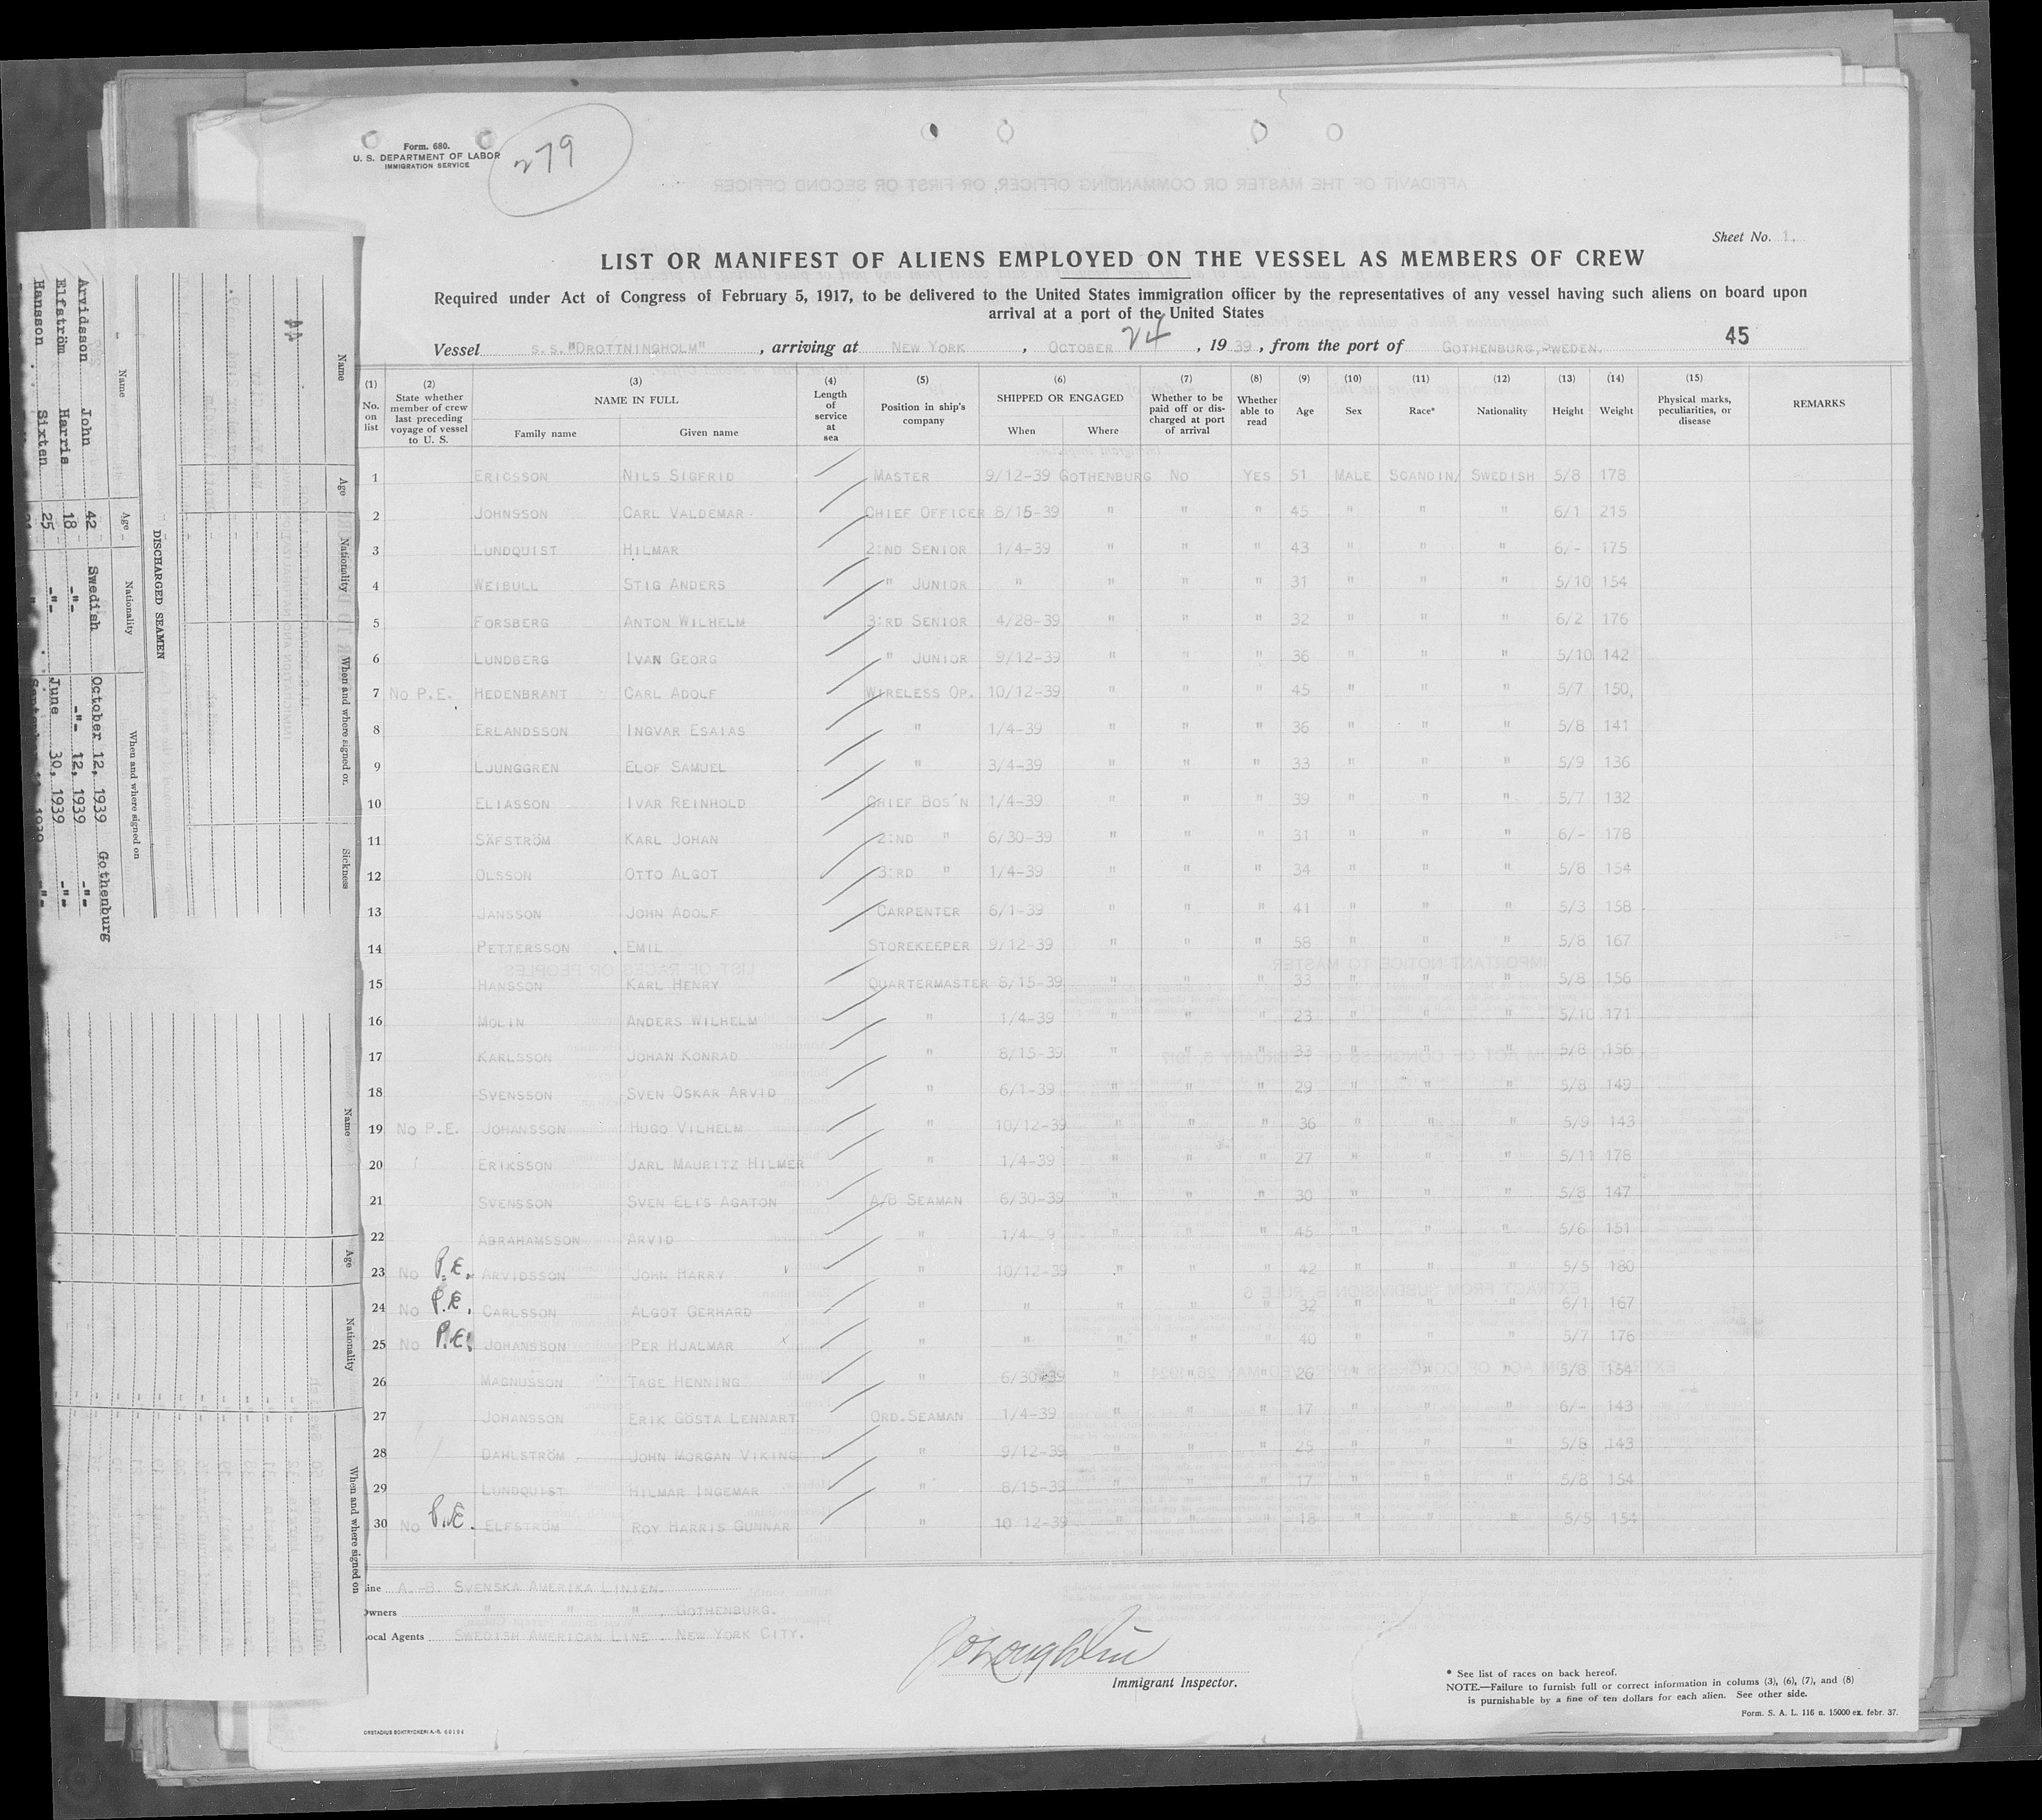 Form. 680.
U. S. DEPARTMENT OF LABOR
IMMIGRATION SERVICE
279
Sheet No. 1.
LIST OR MANIFEST OF ALIENS EMPLOYED ON THE VESSEL AS MEMBERS OF CREW
Required under Act of Congress of February 5, 1917, to be delivered to the United States immigration officer by the representatives of any vessel having such aliens on board upon
arrival at a port of the United States
45
Vessel S.S."DROTTNINGHOLM", arriving at NEW YORK, OCTOBER 24, 1939, from the port of GOTHENBURG, SWEDEN.
(1) (2) (3) (4) (5) (6) (7) (8) (9) (10) (11) (12) (13) (14) (15)
No. on list State whether member of crew last preceding voyage of vessel to U. S. NAME IN FULL Family name Given name Length of service at sea Position in ship's company SHIPPED OR ENGAGED When Where Whether to be paid off or discharged at port of arrival Whether able to read Age Sex Race* Nationality Height Weight Physical marks, peculiarities, or disease REMARKS
1 ERICSSON NILS SIGFRID MASTER 9/12-39 GOTHENBURG NO YES 51 MALE SCANDIN/ SWEDISH 5/8 178
2 JOHNSSON CARL VALDEMAR CHIEF OFFICER 8/15-39 " " " 45 " " " 6/1 215
3 LUNDQUIST HILMAR 2:ND SENIOR 1/4-39 " " " 43 " " " 6/- 175
4 WEIBULL STIG ANDERS " JUNIOR " " " " 31 " " " 5/10 154
5 FORSBERG ANTON WILHELM 3:RD SENIOR 4/28-39 " " " 32 " " " 6/2 176
6 LUNDBERG IVAN GEORG " JUNIOR 9/12-39 " " " 36 " " " 5/10 142
7 NO P.E. HEDENBRANT CARL ADOLF WIRELESS OP. 10/12-39 " " " 45 " " " 5/7 150,
8 ERLANDSSON INGVAR ESAIAS " 1/4-39 " " " 36 " " " 5/8 141
9 LJUNGGREN ELOF SAMUEL " 3/4-39 " " " 33 " " " 5/9 136
10 ELIASSON IVAR REINHOLD CHIEF BOS'N 1/4-39 " " " 39 " " " 5/7 132
11 SÄFSTRÖM KARL JOHAN 2:ND " 6/30-39 " " " 31 " " " 6/- 178
12 OLSSON OTTO ALGOT 3:RD " 1/4-39 " " " 34 " " " 5/8 154
13 JANSSON JOHN ADOLF CARPENTER 6/1-39 " " " 41 " " " 5/3 158
14 PETTERSSON EMIL STOREKEEPER 9/12-39 " " " 58 " " " 5/8 167
15 HANSSON KARL HENRY QUARTERMASTER 8/15-39 " " " 33 " " " 5/8 156
16 MOLIN ANDERS WILHELM " 1/4-39 " " " 23 " " " 5/10 171
17 KARLSSON JOHAN KONRAD " 8/15-39 " " " 33 " " " 5/8 156
18 SVENSSON SVEN OSKAR ARVID " 6/1-39 " " " 29 " " " 5/8 149
19 NO P.E. JOHANSSON HUGO VILHELM " 10/12-39 " " " 36 " " " 5/9 143
20 ERIKSSON JARL MAURITZ HILMER " 1/4-39 " " " 27 " " " 5/11 178
21 SVENSSON SVEN ELIS AGATON A/B SEAMAN 6/30-39 " " " 30 " " " 5/8 147
22 ABRAHAMSSON ARVID " 1/4- 9 " " " 45 " " " 5/6 151
23 NO P.E. ARVIDSSON JOHN HARRY " 10/12-39 " " " 42 " " " 5/5 180
24 NO P.E. CARLSSON ALGOT GERHARD " " " " " 32 " " " 6/1 167
25 NO P.E. JOHANSSON PER HJALMAR x " " " " " 40 " " " 5/7 176
26 MAGNUSSON TAGE HENNING " 6/30-39 " " " 26 " " " 5/8 154
27 JOHANSSON ERIK GÖSTA LENNART ORD.SEAMAN 1/4-39 " " " 17 " " " 6/- 143
28 DAHLSTRÖM JOHN MORGAN VIKING " 9/12-39 " " " 25 " " " 5/8 143
29 LUNDQUIST HILMAR INGEMAR " 8/15-39 " " " 17 " " " 5/8 154
30 NO P.E. ELFSTRÖM ROY HARRIS GUNNAR " 10 12-39 " " " 18 " " " 5/5 154
ine A.-B. SVENSKA AMERIKA LINIEN.
wners " " ", GOTHENBURG.
ocal Agents SWEDISH AMERICAN LINE, NEW YORK CITY.
Immigrant Inspector.
* See list of races on back hereof.
NOTE.—Failure to furnish full or correct information in colums (3), (6), (7), and (8)
is punishable by a fine of ten dollars for each alien. See other side.
Form. S. A. L. 116 a. 15000 ex. febr. 37.
44
Name Age Nationality When and where signed on Sickness
DISCHARGED SEAMEN
Name Age Nationality When and where signed on
Arvidsson John 42 Swedish October 12, 1939 Gothenburg
Elfström Harris 18 -"- -"- 12, 1939 -"-
Hansson Sixten 25 -"- June 30, 1939 -"-
Name Age Nationality When and where signed on